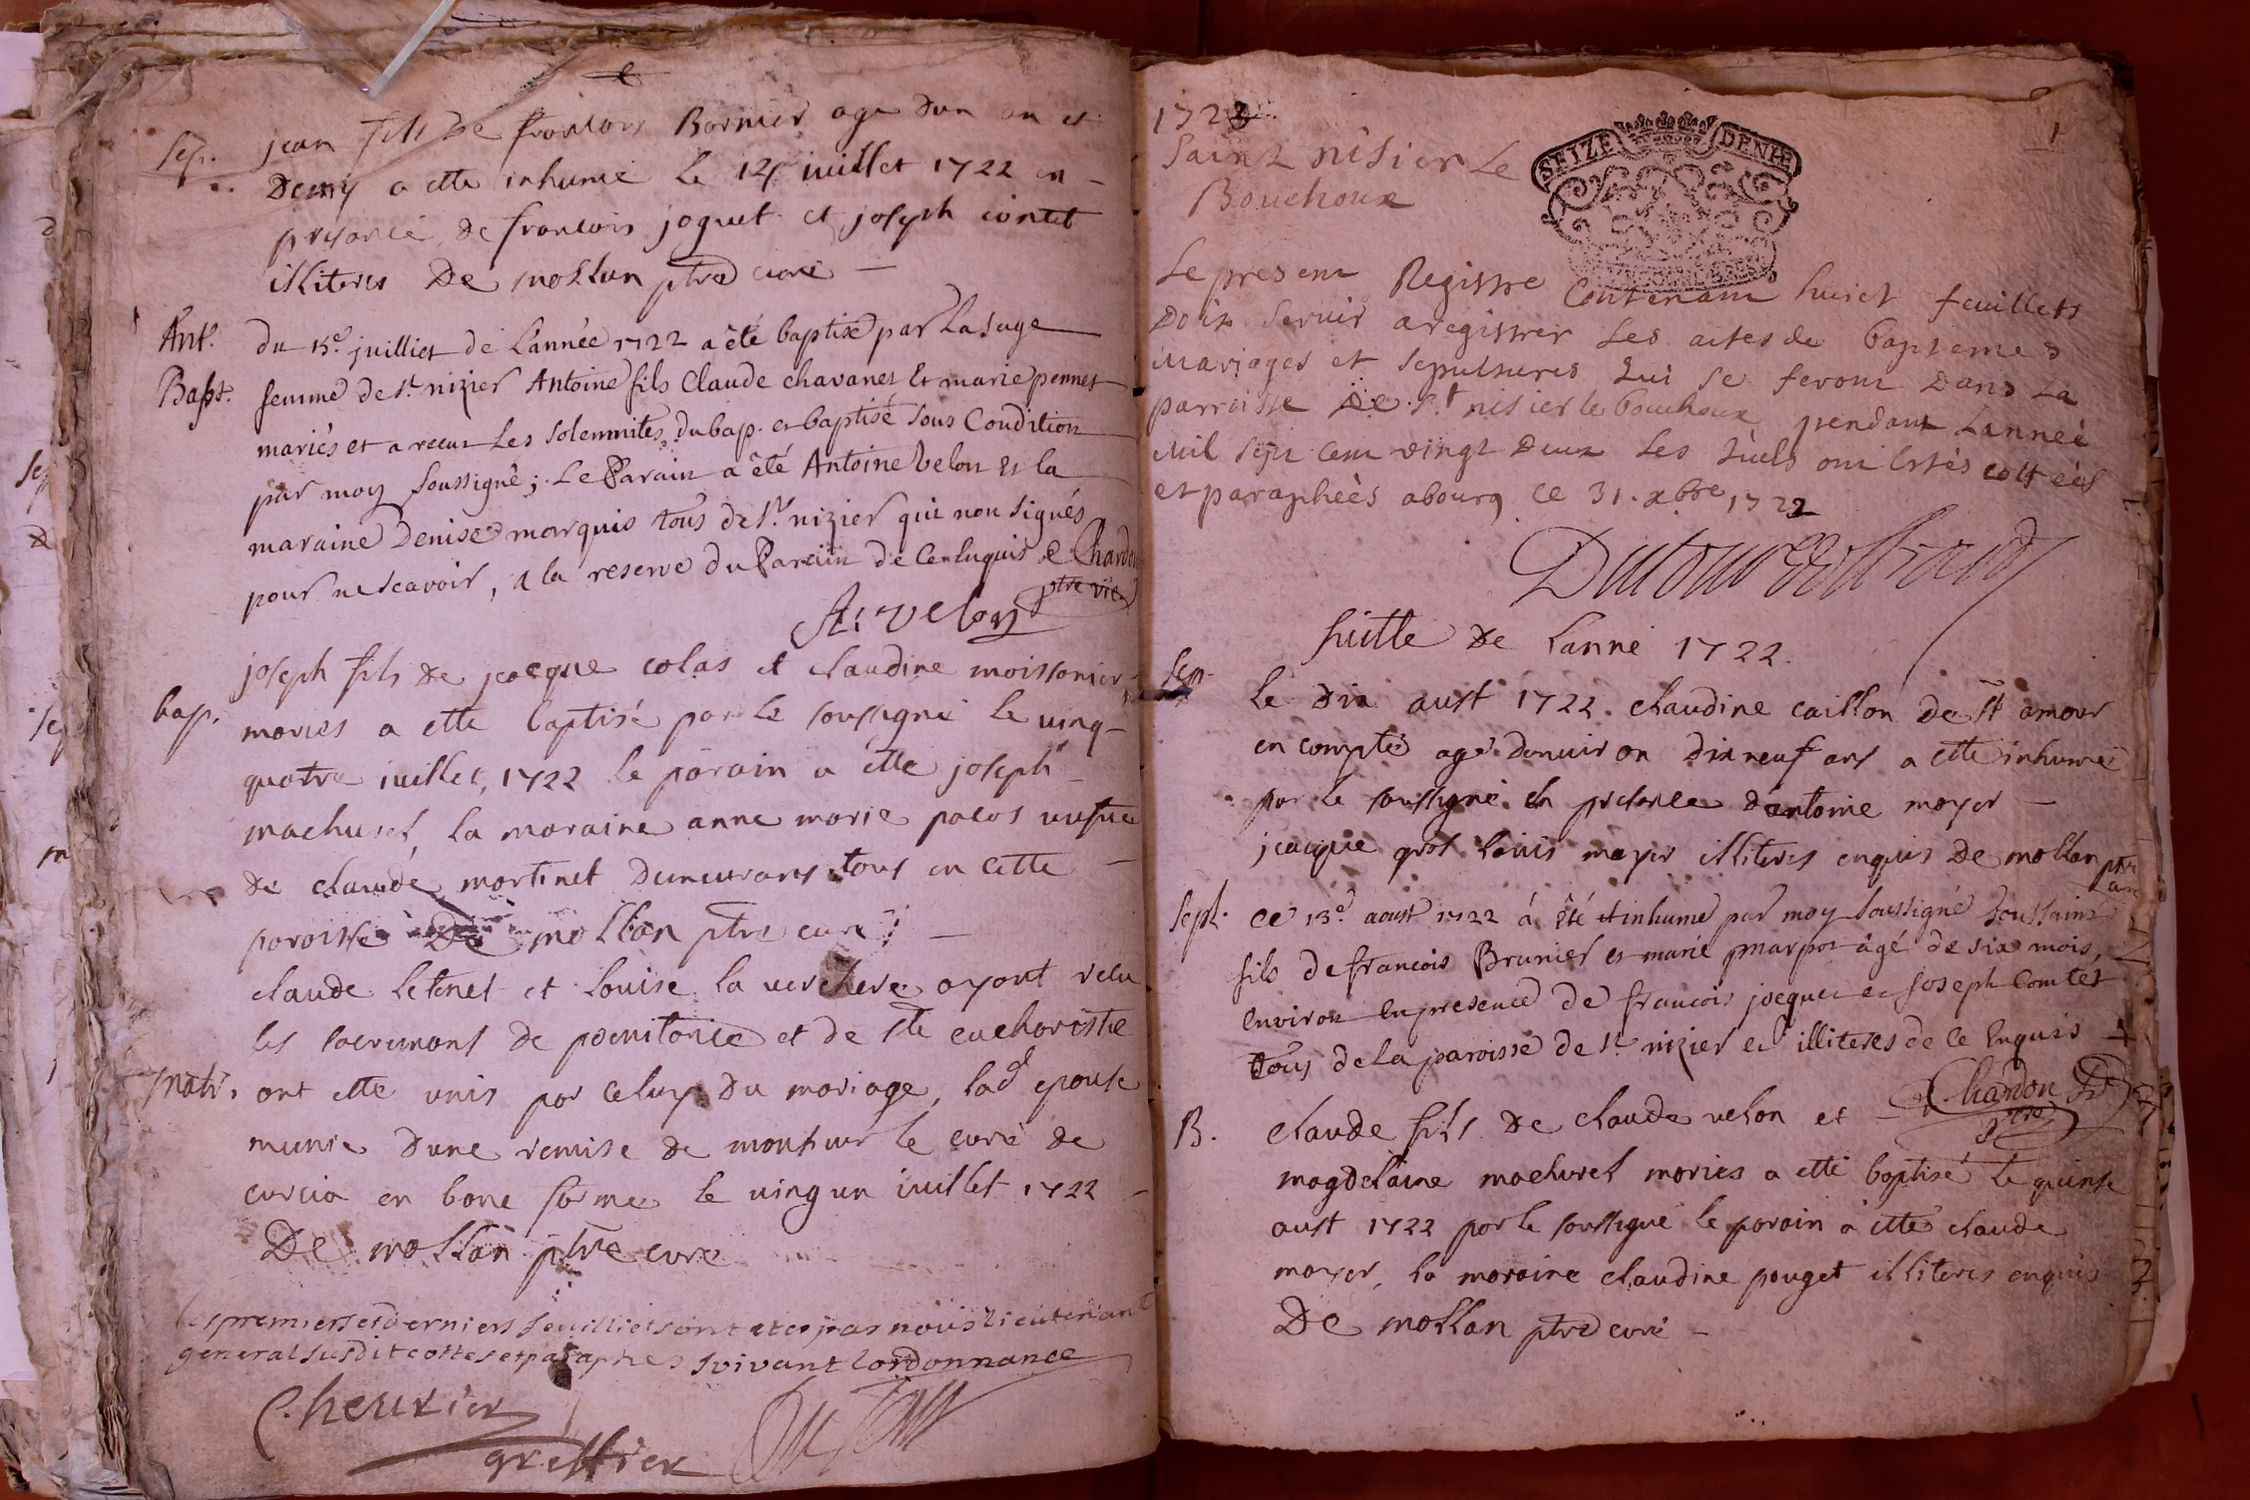 Sep. jean fils de francois Bornier age dun an et
Demy a ette inhume le 14 juillet 1722 en
presance de francois joquet et joseph contet
illiteres De mollan ptre curé
Ant. du 15e juilliet de L'année 1722 a êté baptisé par La sage
Bapt. femme de St nizier Antoine fils Claude chavanet et marie pennet
mariés et a receu Les solemnites du bap. et baptisé sous Condition
par moy soussigné ; Le Parain a été Antoine velon et la
maraine Denise marquis tous de St nizier qui non signés
pour ne scavoir, a la reserve du Parain de ce enquis Chardon
ptre vic
A. velon
joseph fils de jacque colas et claudine moissonier
bap. maries a ette baptisé par le soussigné le ving
quatre juillet, 1722 le parain a ette joseph
machuret, la maraine anne marie pacos
de claude martinet demeurans tous en cette
paroisse De mollan ptre curé
claude letinet et louise la verchere ayant recu
les sacremans de poenitance et de Ste eucharistie
Matr. ont ette unis par celuy du mariage, lad epouse
munie dune remise de monsieur le curé de
curcia en bone forme le ving un juillet 1722
De mollan ptre curé
Les premiers et derniers feuilliets ont etes par nous lieutenant
general susdit cottes et paraphes suivant lordonnance
Cheurier
greffier
1722
1
SEIZE DENIE
Saint nisier Le
Bouchoux
Le present Registre Contenant huict feuillets
Doit servir a registrer Les actes de baptemes
Mariages et sepultures qui se feront Dans La
parroisse De St nisier le bouchoux pendant Lanneé
Mil sept cent vingt Deux Les quels ont Estés cotteés
et parapheés a bourg ce 31. xbre 1722
suitte De Lanné 1722.
Sep. le dix aust 1722. claudine caillon de St amour
en compté agé denviron dix neuf ans a ette inhumeé
par le soussigné en presance dantoine mayer
jacque grot louis mayer illiteres enquis De mollan ptre
Sept. ce 13e aoust 1722 à été inhumé par moy soussigné toussaint
fils de francois Brunier et marie marpot âgé de six mois,
environ en presence de francois jocquet et joseph Comtet
tous de la paroisse de St nizier et illiteres de ce Enquis
Chardon
ptre
B. claude fils de claude velon et
magdelaine machuret maries a etté baptisé le quinse
aust 1722 par le soussigné le parain a etté claude
mayer, la maraine claudine pouget illiteres enquis
De mollan ptre curé